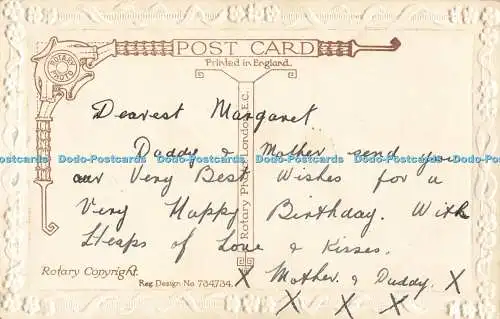 POST CARD
Printed in England.
ROTARY PHOTO
Dearest Margaret
Daddy & Mother send you
Dodo-Postcards Dodo-Postcards Dodo-Postcards Dodo-Postcards Dodo-Postcards
our Very Best Wishes for a
Very Happy Birthday. With
Heaps of Love & Kisses.
Rotary Photo, London, E.C.
Rotary Copyright. X Mother. & Daddy. X
Reg. Design No 734734. X X X